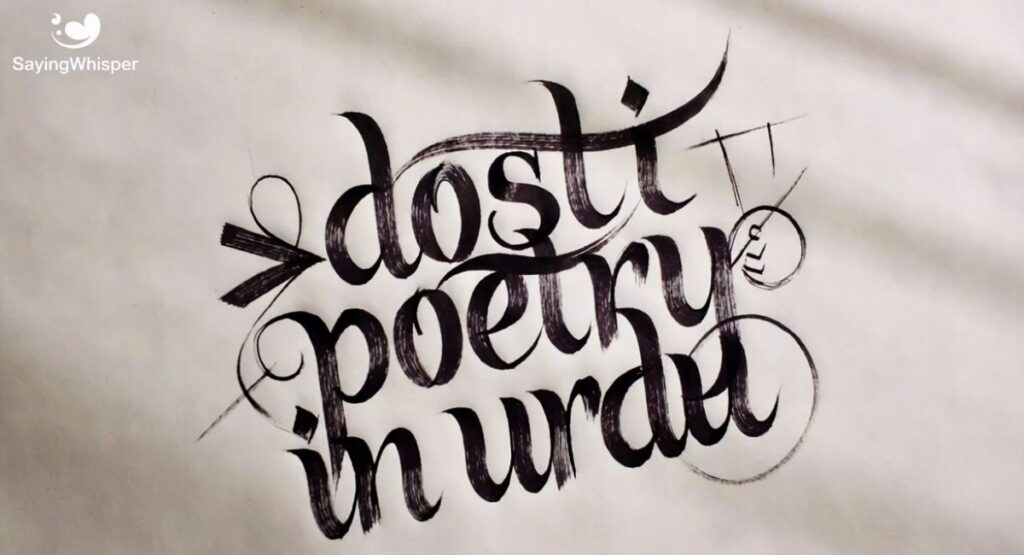 SayingWhisper
dosti
poetry
in urdu